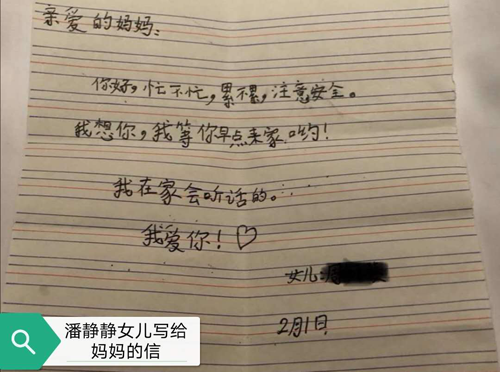 亲爱的妈妈:
你好,忙不忙,累不累,注意安全。
我想你,我等你早点来家哟!
我在家会听话的。
我爱你!♡
女儿:
2月1日
潘静静女儿写给
妈妈的信